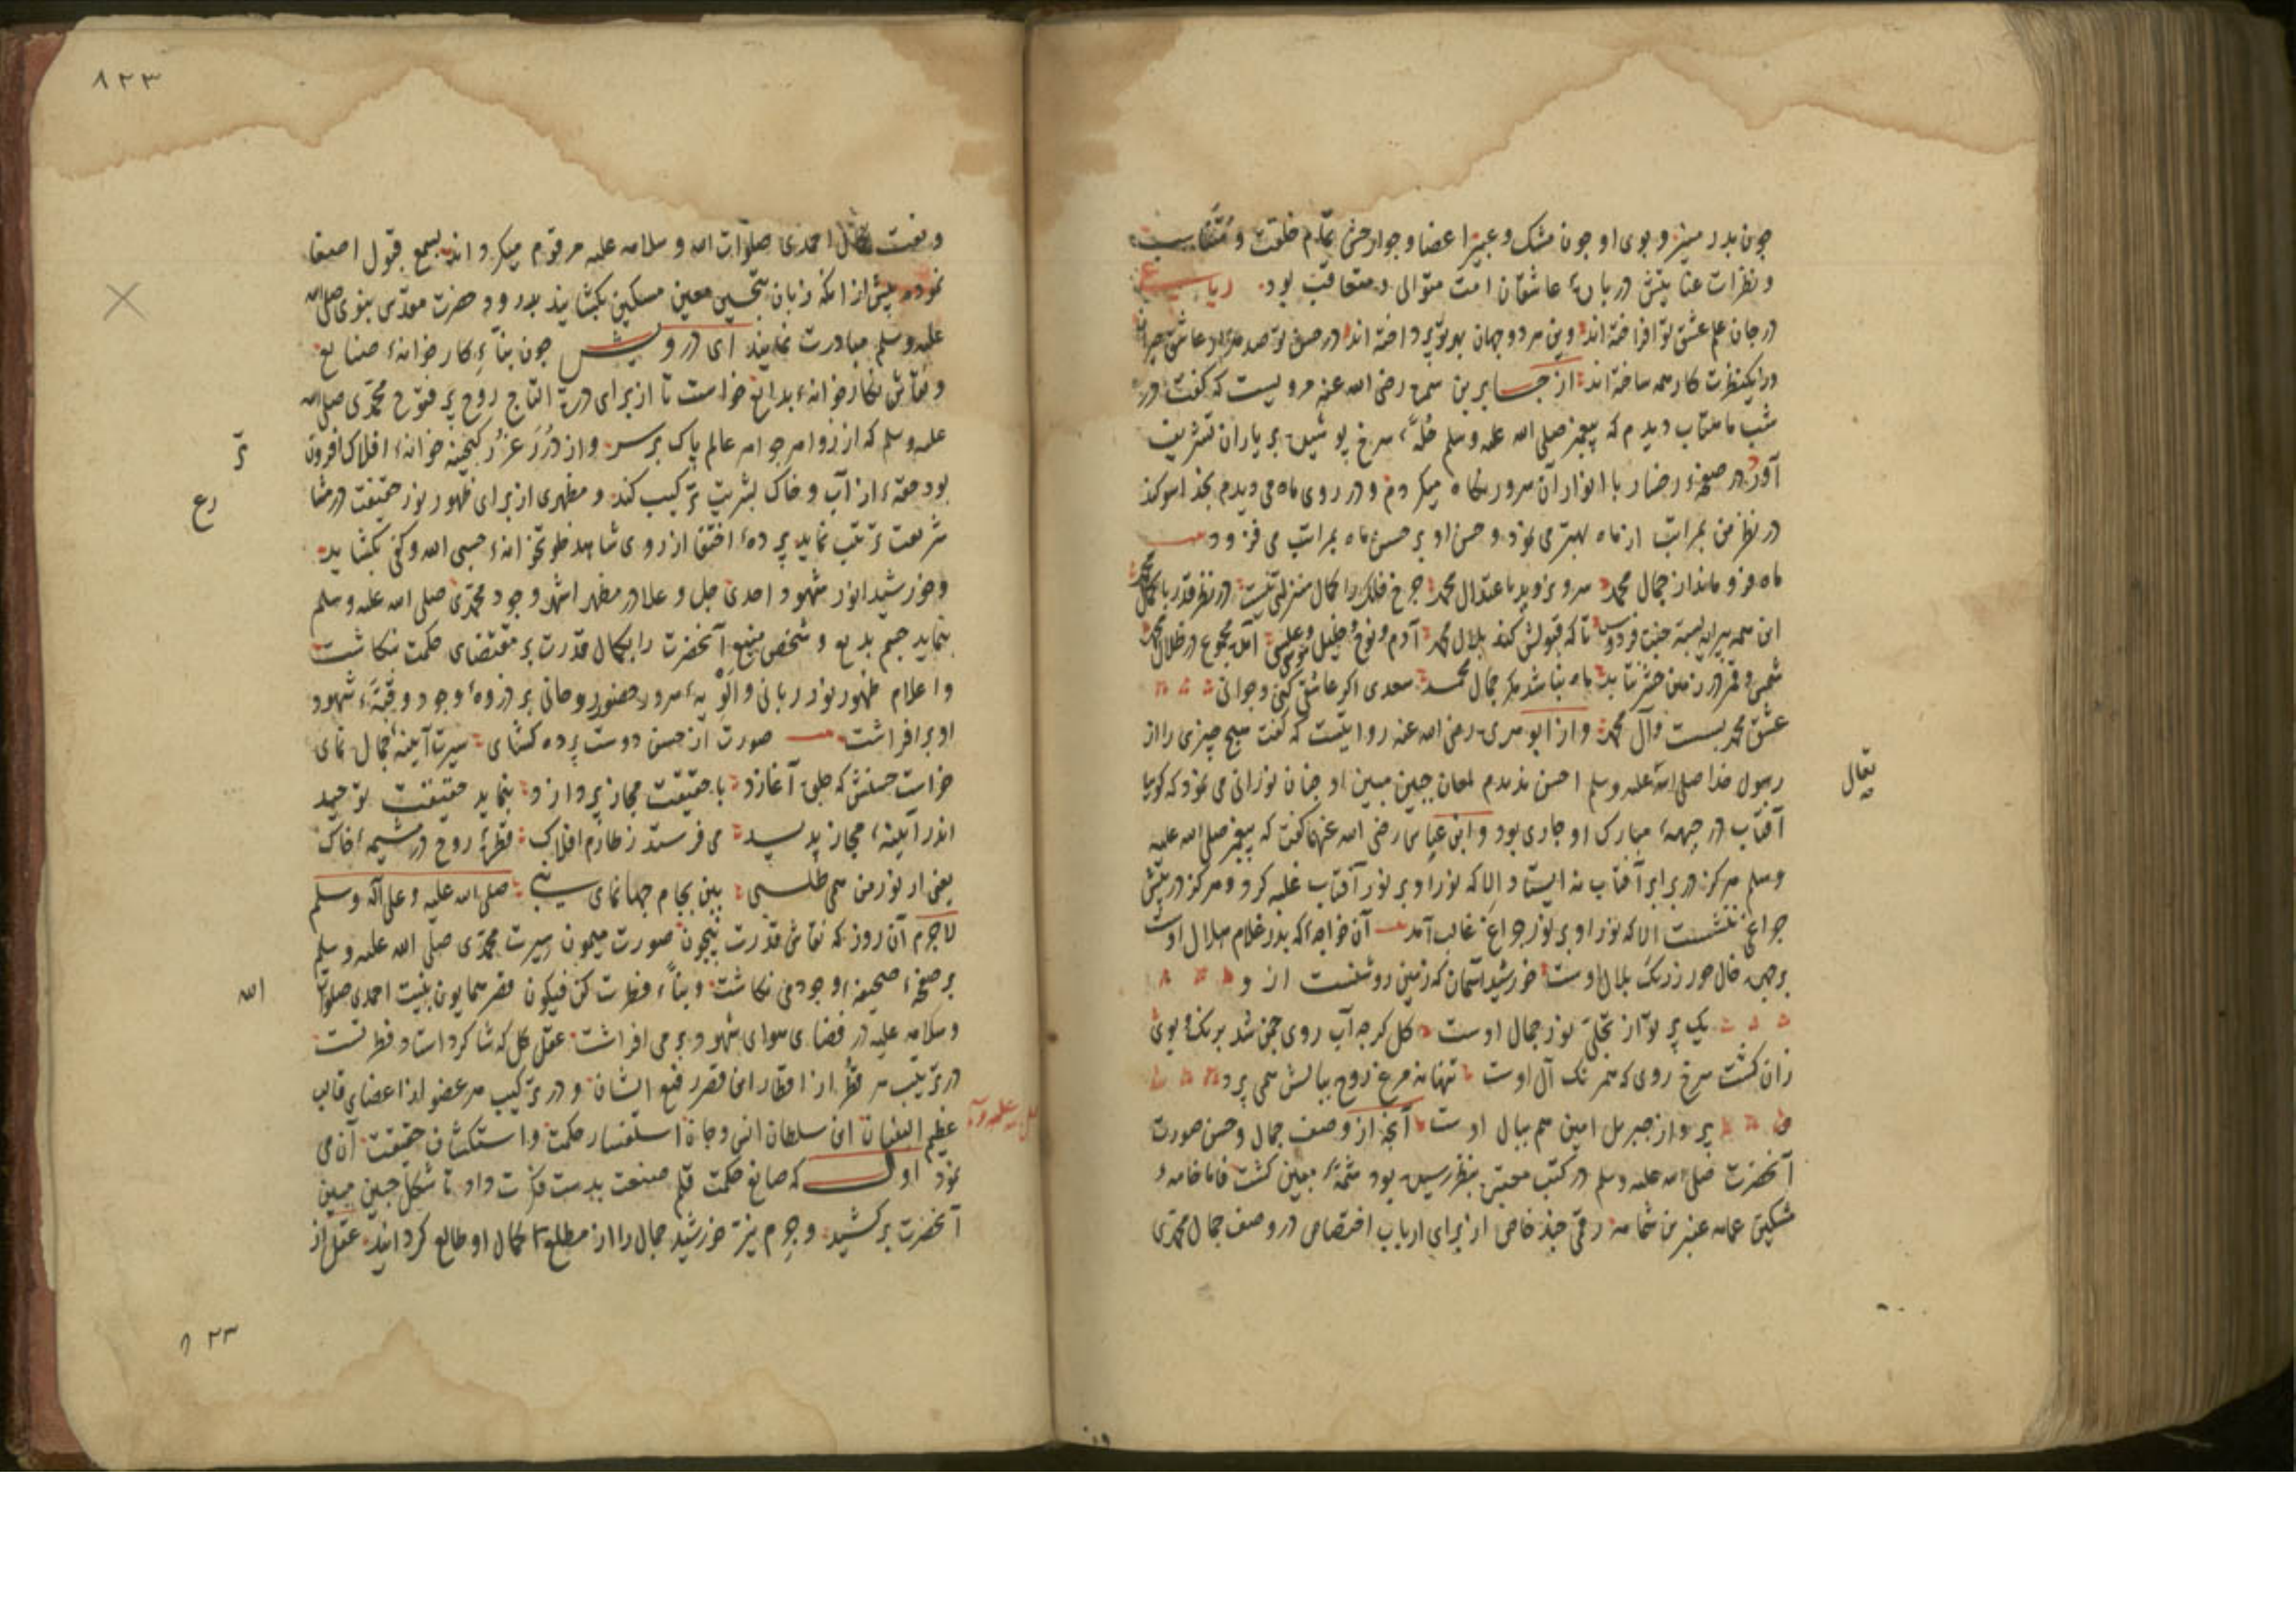 چون بدر منیر و بوی او چون مشک و عبیر اعضا و جوارحش تمام خلقت و متناسب
و نظرات عنایتش درباره عاشقان امت متوالی و متعاقب بود رباعی
در جان علم عشق تو افراخته اند وین هر دو جهان بهر تو پرداخته اند در حسن تو صد هزار عاشق حیران
در یک نظرت کار همه ساخته اند از جابر بن سمره رضی الله عنه مرویست که گفت در
شب ماهتاب دیدم که پیغمبر صلی الله علیه وسلم حُلّهٔ سرخ پوشیده بر یاران تشریف
آورد در صفحهٔ رخسار با انوار آن سرور نگاه میکردم و در روی ماه می دیدم بخدا سوکند
در نظر من بمراتب از ماه بهتر می نمود و حسن او بر حسن ماه بمراتب می فزود
ماه فرو ماند از جمال محمد سرو نروید باعتدال محمد چرخ فلک را کمال منزلتی نیست در نظر قدر با کمال محمد
این همه پیرایه بسته جنت فردوس تا که قبولش کند بلال محمد آدم و نوح و خلیل و موسی و عیسی آمده مجموع در ظلال محمد
شمس و قمر در زمین حشر نتابد ماه نباشد مکر جمال محمد سعدی اکر عاشقی کنی و جوانی
عشق محمد بست و آل محمد و از ابو هریره رضی الله عنه روایتست که گفت هیچ چیزی را از
رسول خدا صلی الله علیه وسلم احسن ندیدم لمعان جبین مبین او چنان نورانی می نمود که کویا
تعالی
آفتاب در جبههٔ مبارک او جاری بود و ابن عباس رضی الله عنهما گفت که پیغمبر صلی الله علیه
وسلم هرگز در برابر آفتاب نه ایستاد الا که نور او بر نور آفتاب غلبه کرد و هرکز در پیش
چراغ ننشست الا که نور او بر نور چراغ غالب آمد آن خواجه که بدر غلام هلال اوست
بر جبهه خال حور ز رنگ بلال اوست خورشید آسمان که زمین روشنست از و
یک پرتو از تجلی نور جمال اوست کل کرچه آب روی چمن شد برنک و بوی
زان کشت سرخ روی که همرنک آل اوست تنها نه مرغ روح ببالش همی پرد
پرواز جبریل امین هم ببال اوست آنچه از وصف جمال و حسن صورت
آنحضرت صلی الله علیه وسلم در کتب معتبر بنظر رسیده بود معین کشت فاما خامهٔ
مشکین عمامه عنبرین شمامه رقمی چند خاص از برای ارباب اختصاص در وصف جمال محمدی
۸۲۳
و نعت کمال احمدی صلوات الله و سلامه علیه مرقوم میکرداند بسمع قبول اصغا
نموده پیش از انکه زبان بتحسین معین مسکین بکشایند بدرود حضرت مقدس نبوی صلی الله
علیه وسلم مبادرت نمایند ای درویش چون بنّاءِ کارخانهٔ صنایع
و نقاش نکارخانهٔ بدایع خواست تا از برای درة التاج روح پر فتوح محمدی صلی الله
علیه وسلم که از زواهر جواهر عالم پاک بر سر و از دُرَر غُرَر کنجینه خوانهٔ افلاک افزون
بود حقهٔ از آب و خاک بشریت ترکیب کند و مظهری از برای ظهور نور حقیقت در
شریعت ترتیب نماید پردهٔ اختفا از روی شاهد خلوتخانهٔ حسبی الله و کفی بکشاید
و خورشید انور شهود احدی جل و علا در مظهر اشهد وجود محمدی صلی الله علیه وسلم
بنماید جسم بدیع و شخص منیع آنحضرت را بکمال قدرت بر مقتضای حکمت بنکاشت
و اعلام ظهور نور ربانی و الویهٔ سرور حضور روحانی بر ذروهٔ وجود و قبّهٔ شهود
او بر افراشت صورت از حسن دوست پرده کشای سیرت آیینهٔ جمال نمای
خواست حسنش که جلوه آغازد با حقیقت مجاز پردازد بنماید حقیقت توحید
اندر آیینهٔ مجاز پدید می فرستد ز طارم افلاک قطرهٔ روح در مشیمهٔ خاک
یعنی ار نور من همی طلبی ببین بجام جهانمای نبی صلی الله علیه و علی آله وسلم
لاجرم آن روز که نقاش قدرت بیچون صورت میمون سیرت محمدی صلی الله علیه وسلم
بر صفحهٔ صحیفهٔ وجود می نکاشت و بنّاءِ فطرت کن فیکون قصر همایون بنیت احمدی صلوات
الله
و سلامه علیه در فضای هوای شهود بر می افراشت عقل کل که شاکرد استاد فطرتست
در ترتیب هر قطر از اقطار این قصر رفیع الشان و در ترکیب هر عضو از اعضای قالب
عظیم البنیان این سلطان انس و جان استفسار حکمت و استکشاف حقیقت آن می
نمود اول که صانع حکمت قلم صنعت بدست فکرت داد تا شکل جبین مبین
آنحضرت بر کشید و جرم نیر خورشید جمال را از مطلع کمال او طالع کردانید عقل از
۸۲۳